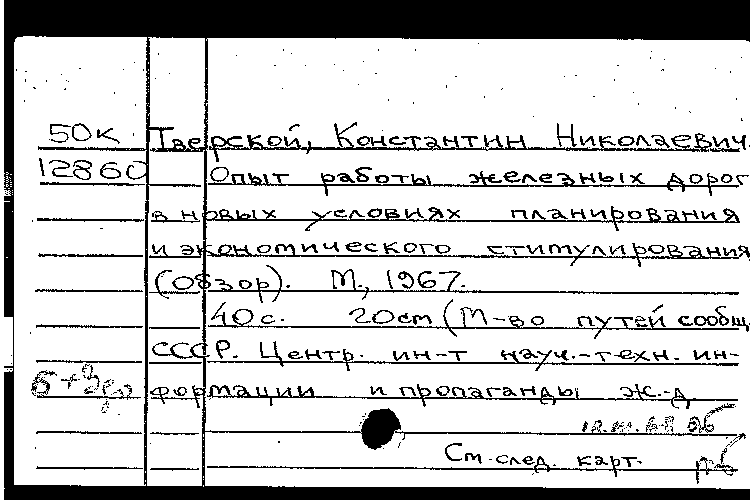 50к Тверской, Константин Николаевич.
12860 Опыт работы железных дорог
в новых условиях планирования
и экономического стимулирования
(Обзор). М., 1967.
40 с. 20 cm (М-во путей сообщ.
СССР. Центр. ин-т науч.-техн. ин-
формации и пропаганды ж.-д.
См. след. карт.